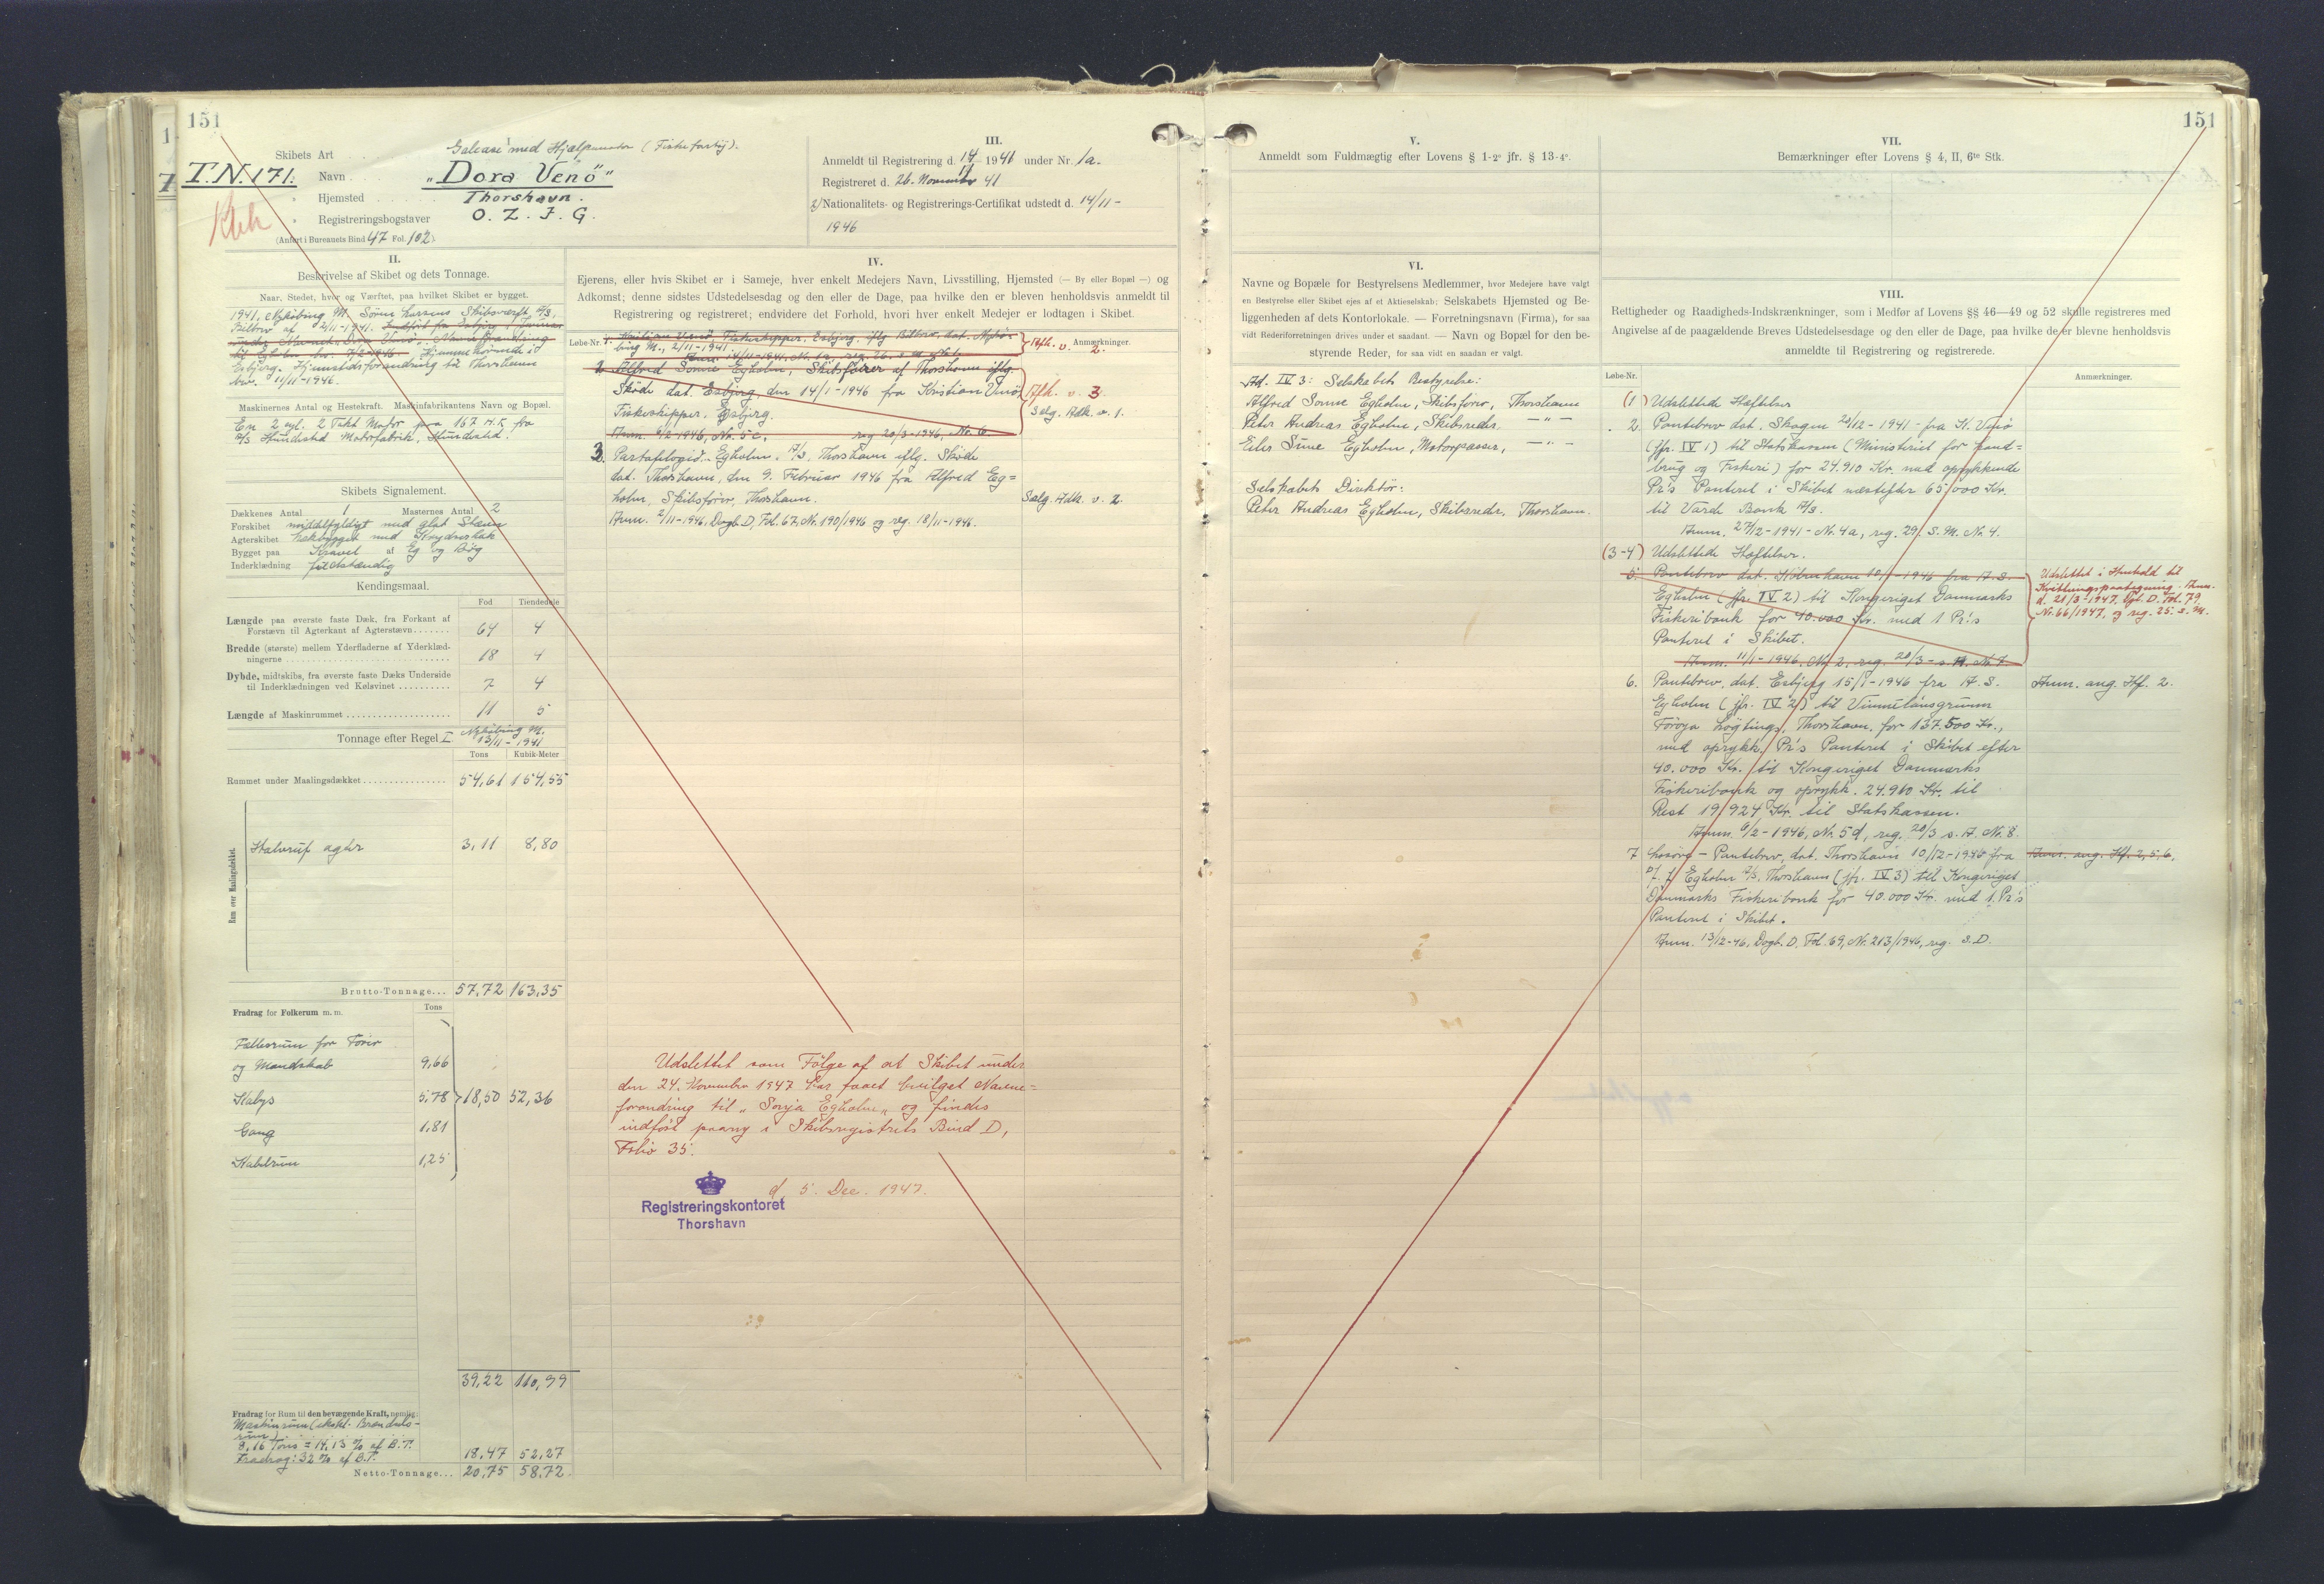 151
Skibets Art Galease med Hjælpemotor (Fiskefartøj).
T.N. 171. Navn „Dora Venö"
Hjemsted Thorshavn.
Registreringsbogstaver O. Z. J. G.
(Anført i Bureauets Bind 47 Fol. 102)
II.
Beskrivelse af Skibet og dets Tonnage.
Naar, Stedet, hvor og Værftet, paa hvilket Skibet er bygget.
1941, Nykøbing M. Sören Larsens Skibsværft A/S,
Bilbrev af 2/11-1941.
Esbjerg. Hjemstedsforandring til Thorshavn
bev. 11/11-1946.
Maskinernes Antal og Hestekraft. Maskinfabrikantens Navn og Bopæl.
En 2 cyl. 2 Takt Motor paa 167 H.K. fra
A/S Hundested Motorfabrik, Hundested.
Skibets Signalement.
Dækkenes Antal 1 Masternes Antal 2
Forskibet middelfyldigt med glat Stævn
Agterskibet hækbygget med Krydserhæk
Bygget paa Kravel af Eg og Bøg
Inderklædning fuldstændig
Kendingsmaal.
Fod Tiendedele
Længde paa øverste faste Dæk, fra Forkant af
Forstævn til Agterkant af Agterstævn 64 4
Bredde (største) mellem Yderfladerne af Yderklæd-
ningerne 18 4
Dybde, midtskibs, fra øverste faste Dæks Underside
til Inderklædningen ved Kølsvinet 7 4
Længde af Maskinrummet 11 5
Tonnage efter Regel I. Nykøbing M.
13/11-1941
Tons Kubik-Meter
Rummet under Maalingsdækket 54,61 154,55
Rum over Maalingsdækket.
Halvruf agter 3,11 8,80
Brutto-Tonnage... 57,72 163,35
Fradrag for Folkerum m. m. Tons
Fællesrum for Fører
og Mandskab 9,66
Kabys 5,78 18,50 52,36
Gang 1,81
Kabelrum 1,25
39,22 110,99
Fradrag for Rum til den bevægende Kraft, nemlig:
Maskinrum (ekskl. Brændsels-
rum)
8,16 Tons = 14,13 % af B.T.
Fradrag: 32 % af B.T. 18,47 52,27
Netto-Tonnage... 20,75 58,72
III.
Anmeldt til Registrering d. 14/11 1941 under Nr. 1a.
Registreret d. 26. November 41
2/ Nationalitets- og Registrerings-Certifikat udstedt d. 14/11-
1946
IV.
Ejerens, eller hvis Skibet er i Sameje, hver enkelt Medejers Navn, Livsstilling, Hjemsted (— By eller Bopæl —) og
Adkomst; denne sidstes Udstedelsesdag og den eller de Dage, paa hvilke den er bleven henholdsvis anmeldt til
Registrering og registreret; endvidere det Forhold, hvori hver enkelt Medejer er lodtagen i Skibet.
Løbe-Nr. Anmærkninger.
1. Kristian Venö, Fiskeskipper, Esbjerg, iflg. Bilbrev dat. Nykö-
bing M., 2/11-1941
Anm. 14/11-1941, Nr. 1a, reg. 26. s.M. Nr. 1.
Afh. v. 2.
2. Alfred Sonne Egholm, Skibsfører af Thorshavn iflg.
Sköde dat. Esbjerg, den 14/1-1946 fra Kristian Venö
Fiskeskipper, Esbjerg.
Anm. 6/2-1946, Nr. 5c. reg 20/3-1946, Nr. 6
Afh. v. 3
Selg. Adk. v. 1.
3. Partafelagið Egholm, P/S, Thorshavn iflg. Sköde
dat. Thorshavn, den 9. Februar 1946 fra Alfred Eg=
holm, Skibsfører, Thorshavn.
Anm. 2/11-1946, Dagb. D, Fol. 67, Nr. 190/1946 og reg. 12/11-1946.
Sælg. Adk. v. 2.
Udslettet som Følge af at Skibet under
den 24. November 1947 har faaet bevilget Navne=
forandring til „Sonja Egholm„ og findes
indført paany i Skibsregistrets Bind D,
Folio 35.
d. 5. Dec. 1947.
Registreringskontoret
Thorshavn
151
V.
Anmeldt som Fuldmægtig efter Lovens § 1-2° jfr. § 13-4°.
VI.
Navne og Bopæle for Bestyrelsens Medlemmer, hvor Medejere have valgt
en Bestyrelse eller Skibet ejes af et Aktieselskab; Selskabets Hjemsted og Be-
liggenheden af dets Kontorlokale. — Forretningsnavn (Firma), for saa
vidt Rederiforretningen drives under et saadant. — Navn og Bopæl for den be-
styrende Reder, for saa vidt en saadan er valgt.
Ad. IV 3: Selskabets Bestyrelse:
Alfred Sonne Egholm, Skibsfører, Thorshavn
Peter Andreas Egholm, Skibsreder, — " —
Eiler Sune Egholm, Motorpasser, — " —
Selskabets Direktör:
Peter Andreas Egholm, Skibsreder, Thorshavn.
VII.
Bemærkninger efter Lovens § 4, II, 6te Stk.
VIII.
Rettigheder og Raadigheds-Indskrænkninger, som i Medfør af Lovens §§ 46—49 og 52 skulle registreres med
Angivelse af de paagældende Breves Udstedelsesdage og den eller de Dage, paa hvilke de er blevne henholdsvis
anmeldte til Registrering og registrerede.
Løbe-Nr. Anmærkninger.
(1) Udslettede Hæftelser
2. Pantebrev dat. Skagen 20/12-1941 - fra K. Venö
(jfr. IV 1) til Statskassen (Ministeriet for Land=
brug og Fiskeri) for 24.910 Kr. med oprykkende
Pr's Panteret i Skibet næstefter 65,000 Kr.
til Varde Bank A/S.
Anm. 27/12-1941 - Nr. 4a, reg. 29. S.M. Nr. 4.
(3-4) Udslettede Hæftelser.
5. Pantebrev dat. København 10/1-1946 fra A.S.
Egholm (jfr. IV 2) til Kongeriget Danmarks
Fiskeribank for 40.000 Kr. med 1 Pr's
Panteret i Skibet.
Anm. 11/1-1946, Nr. 2, reg. 20/3-s.A. Nr. 7.
Udslettet i Henhold til
Kvitteringspaategning. Anm.
d. 21/3-1947, Dgb. D. Fol. 79
Nr. 66/1947, og reg. 25. s.M.
6. Pantebrev, dat. Esbjerg 15/1-1946 fra A.S.
Egholm (jfr. IV 2) til Vinnulánsgrunn
Føroya Løgtings, Thorshavn, for 137.500 Kr.,
med oprykk. Pr's Panteret i Skibet efter
40.000 Kr. til Kongeriget Danmarks
Fiskeribank og oprykk. 24.910 Kr. til
Rest 19.924 Kr. til Statskassen.
Anm. 6/2-1946, Nr. 5d, reg. 20/3 s.A. Nr. 8.
Anm. ang. Hf. 2.
7 Lösöre - Pantebrev, dat. Thorshavn 10/12-1946 fra
P/f. Egholm P/S, Thorshavn (jfr. IV 3) til Kongeriget
Danmarks Fiskeribank for 40.000 Kr. med 1. Pr's
Panteret i Skibet.
Anm. 13/12-46, Dagb. D, Fol. 69, Nr. 213/1946, reg. s.D.
Anm. ang. Hf. 2, 5, 6,